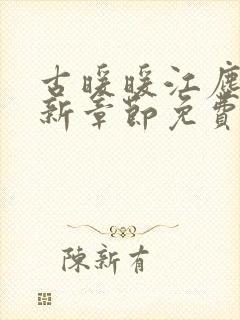 古暖暖江塵
新章節免費
陳新有